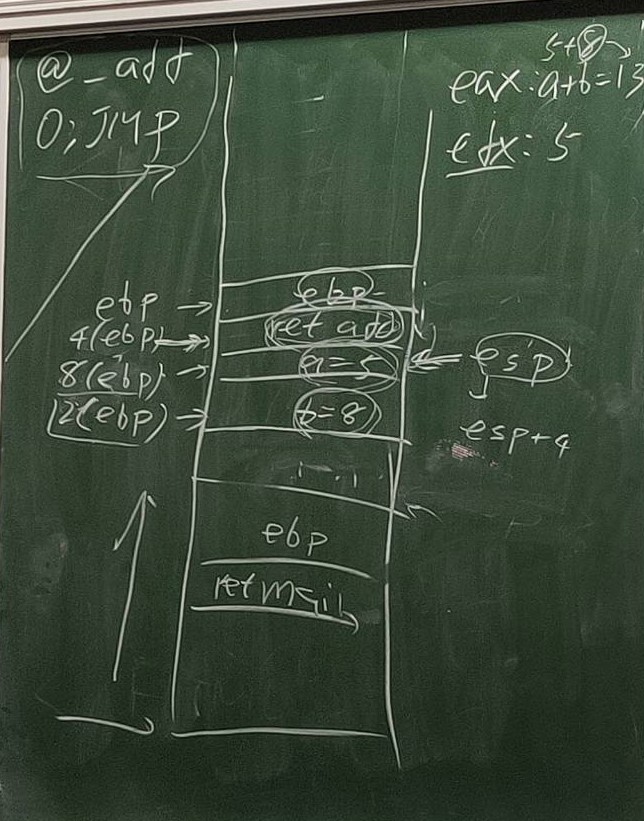 @_add
0; JMP
5+8
eax: a+b=13
edx: 5
ebp
4(ebp)
8(ebp)
12(ebp)
ebp
ret add
a=5
b=8
esp
esp+4
ebp
ret main